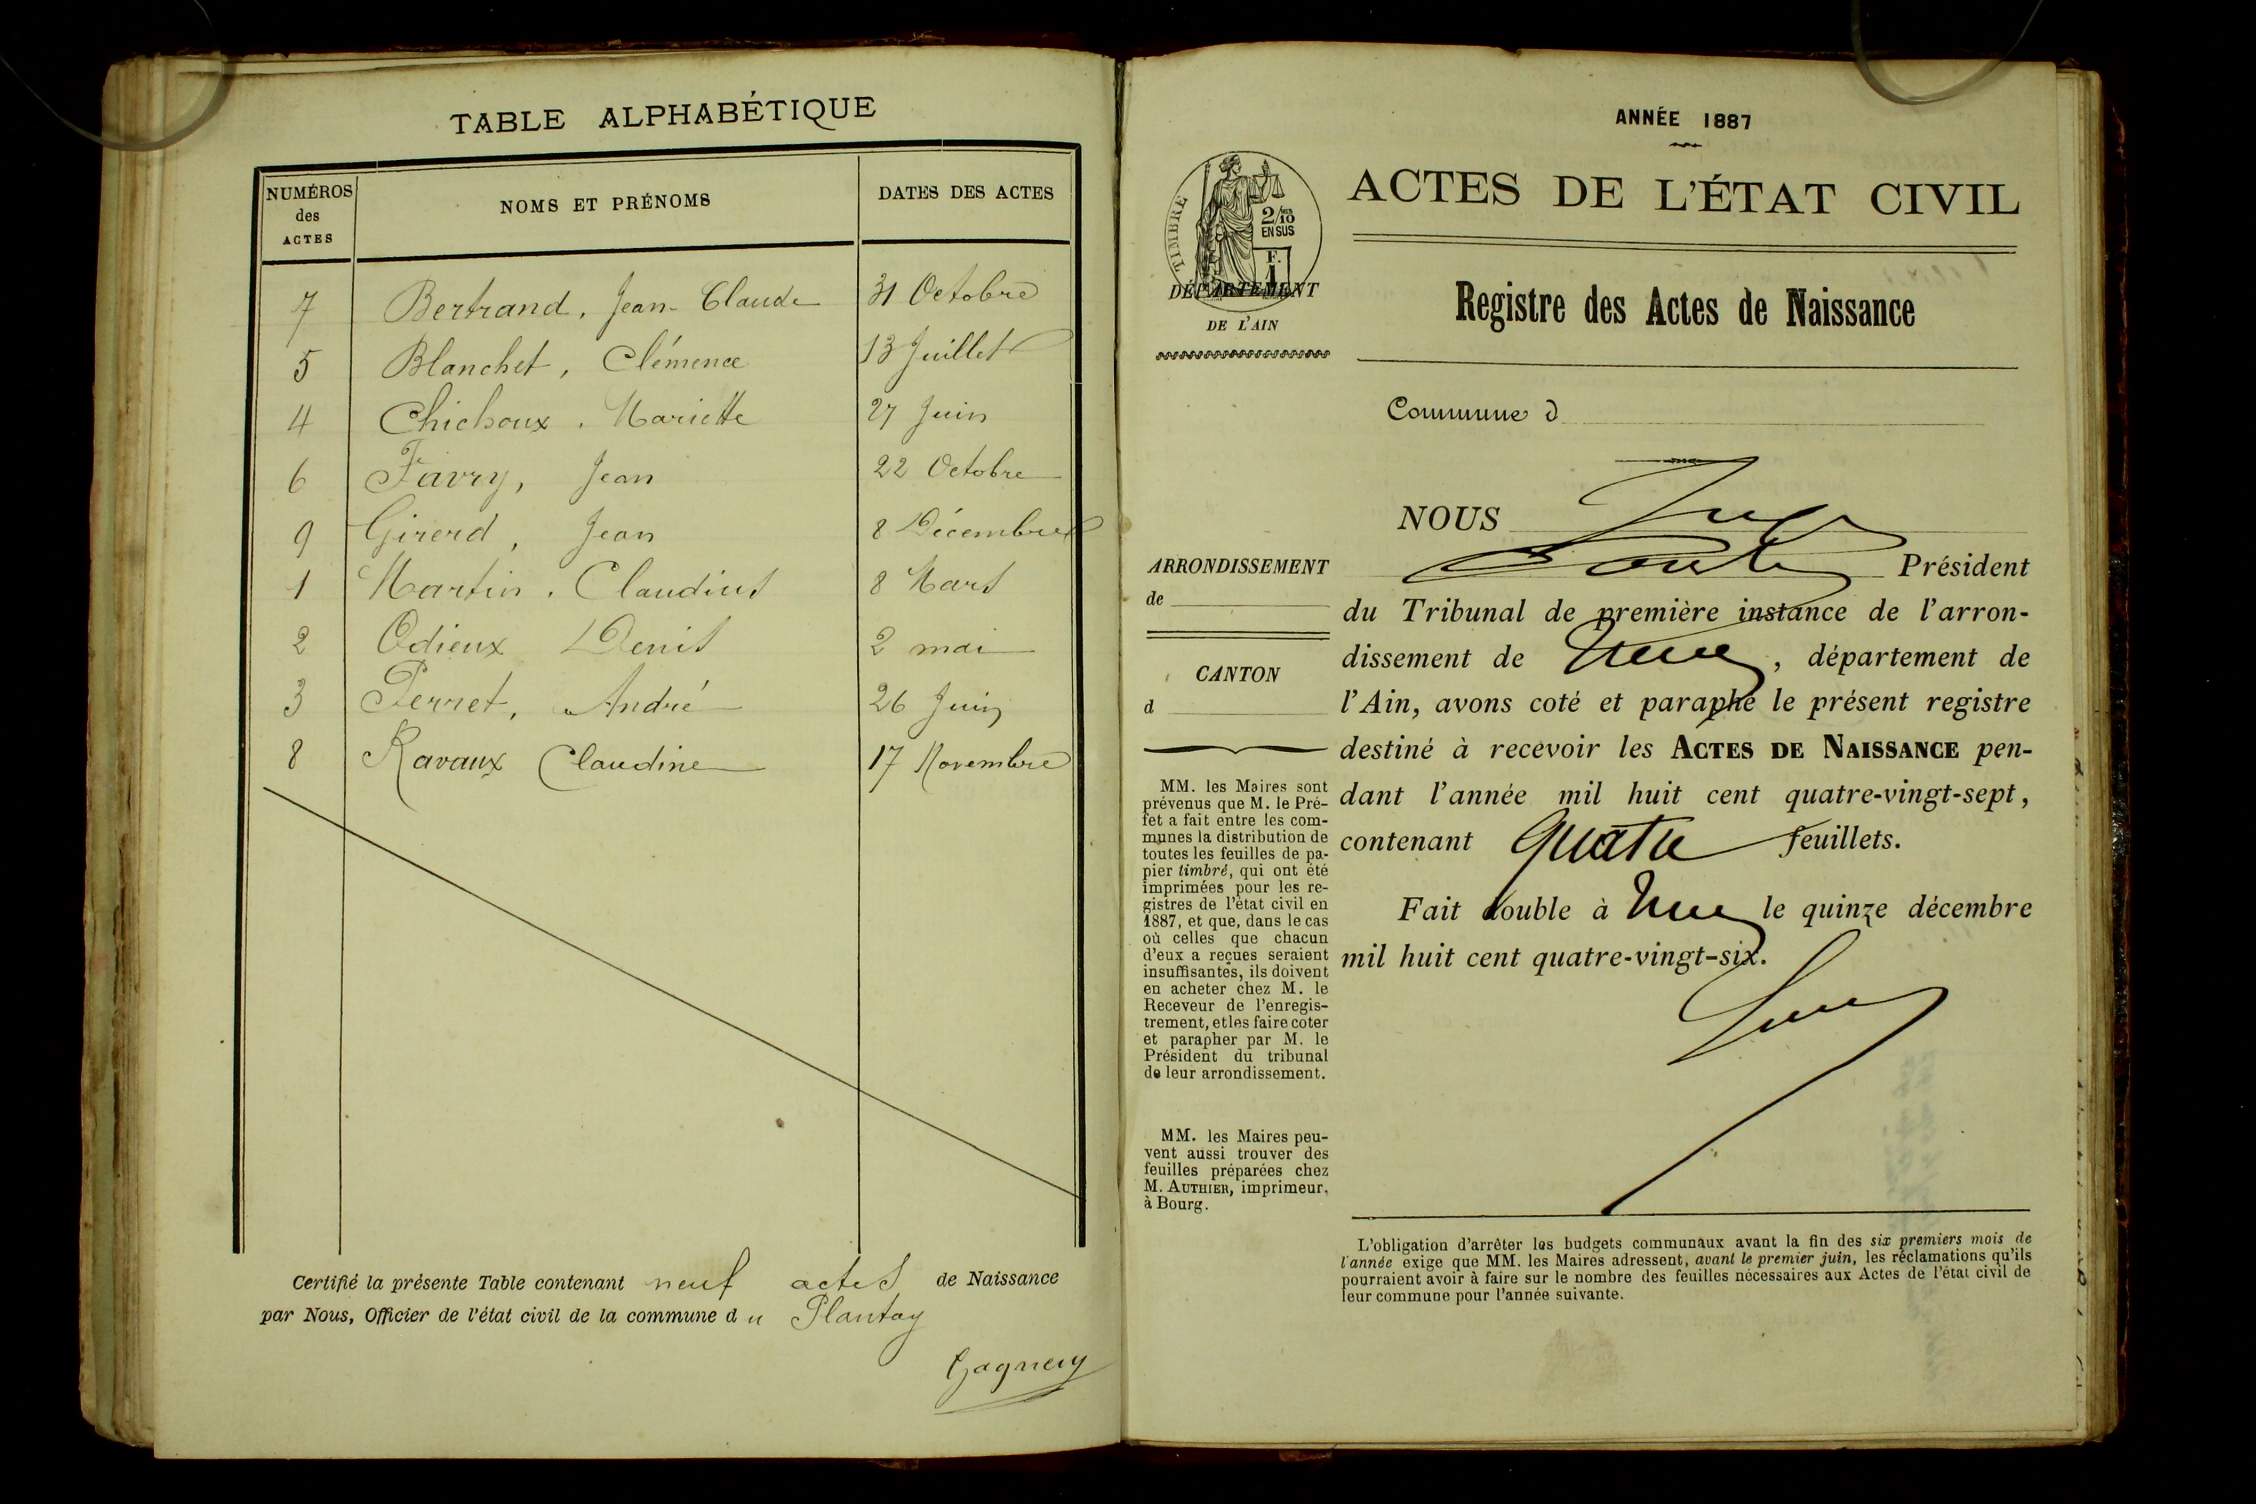 TABLE ALPHABÉTIQUE
NUMÉROS des ACTES NOMS ET PRÉNOMS DATES DES ACTES
7 Bertrand, Jean-Claude 31 Octobre
5 Blanchet, Clémence 13 Juillet
4 Chichoux, Mariette 27 Juin
6 Favry, Jean 22 Octobre
9 Girerd, Jean 8 Décembre
1 Martin, Claudius 8 Mars
2 Odieux Denis 2 mai
3 Perret, André 26 Juin
8 Ravaux Claudine 17 Novembre
Certifié la présente Table contenant neuf actes de Naissance
par Nous, Officier de l'état civil de la commune du Plantay
ANNÉE 1887
ACTES DE L'ÉTAT CIVIL
TIMBRE
2/10
EN SUS
F.
1
DÉPARTEMENT
DE L'AIN
Registre des Actes de Naissance
Commune d
ARRONDISSEMENT
de
CANTON
d
MM. les Maires sont
prévenus que M. le Pré-
fet a fait entre les com-
munes la distribution de
toutes les feuilles de pa-
pier timbré, qui ont été
imprimées pour les re-
gistres de l'état civil en
1887, et que, dans le cas
où celles que chacun
d'eux a reçues seraient
insuffisantes, ils doivent
en acheter chez M. le
Receveur de l'enregis-
trement, et les faire coter
et parapher par M. le
Président du tribunal
de leur arrondissement.
MM. les Maires peu-
vent aussi trouver des
feuilles préparées chez
M. AUTHIER, imprimeur,
à Bourg.
NOUS
Président
du Tribunal de première instance de l'arron-
dissement de , département de
l'Ain, avons coté et paraphé le présent registre
destiné à recevoir les ACTES DE NAISSANCE pen-
dant l'année mil huit cent quatre-vingt-sept,
contenant quatre feuillets.
Fait double à le quinze décembre
mil huit cent quatre-vingt-six.
L'obligation d'arrêter les budgets communaux avant la fin des six premiers mois de
l'année exige que MM. les Maires adressent, avant le premier juin, les réclamations qu'ils
pourraient avoir à faire sur le nombre des feuilles nécessaires aux Actes de l'état civil de
leur commune pour l'année suivante.